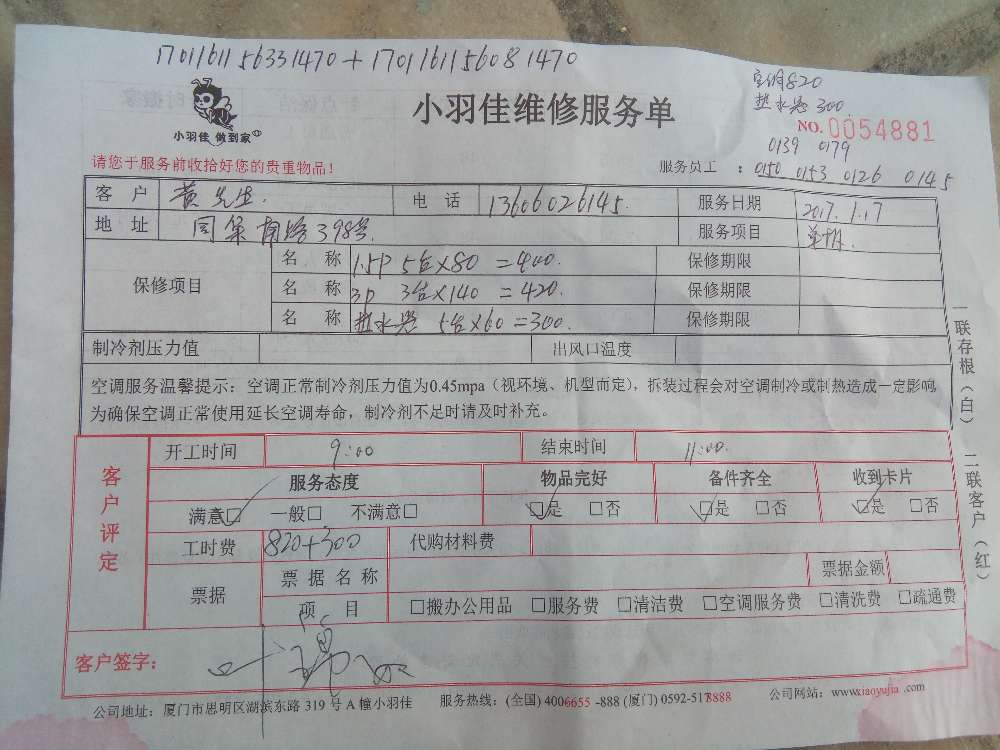 1701161156331470+1701161156081470
空调820
热水器 300
小羽佳 做到家
小羽佳维修服务单
NO. 0054881
0139 0179
请您于服务前收拾好您的贵重物品！
服务员工 ： 0150 0153 0126 0145
客户 黄先生. 电话 13606026145. 服务日期 2017.1.17
地址 同集南路398号. 服务项目
保修项目 名称 1.5P 5台×80 =400. 保修期限
名称 3P 3台×140 =420. 保修期限
名称 热水器 5台×60=300. 保修期限
制冷剂压力值 出风口温度
空调服务温馨提示：空调正常制冷剂压力值为0.45mpa（视环境、机型而定），拆装过程会对空调制冷或制热造成一定影响
为确保空调正常使用延长空调寿命，制冷剂不足时请及时补充。
一联存根（白） 二联客户（红）
客户评定
开工时间 9:00 结束时间 11:00.
服务态度 物品完好 备件齐全 收到卡片
满意□ 一般□ 不满意□ □是 □否 □是 □否 □是 □否
工时费 820+300 代购材料费
票据 票据名称 票据金额
项目 □搬办公用品 □服务费 □清洁费 □空调服务费 □清洗费 □疏通费
客户签字：
公司地址：厦门市思明区湖滨东路 319 号 A 幢小羽佳 服务热线：(全国) 4006655 -888 (厦门) 0592-5178888 公司网站：www.xiaoyujia .com